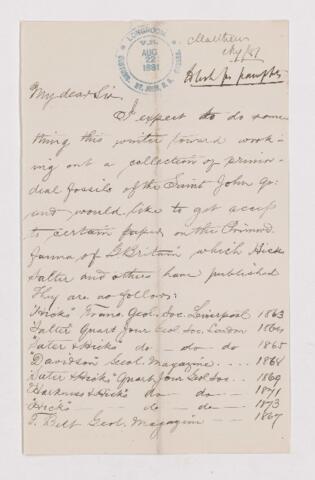 LONGROOM
V.R.
AUG
22
1881
CUSTOMS, ST. JOHN, N.B.
Matthew
My dear Sir
I expect to do some
thing this winter toward work-
ing out a collection of primor-
dial fossils of the Saint John Gr.
and would like to get access
to certain papers on the Primord.
fauna of G. Britain which Hicks
Salter and others have published
They are as follows:
"Hicks" Trans. Geol. Soc. Liverpool 1863
Salter Quart Jour Geol. Soc. London 1864
"Salter & Hicks" do - do - do 1865
"Davidson" Geol. Magazine - - - 1868
"Salter & Hicks" Quart Jour Geol Soc. - - 1869
"Harkness & Hicks" do - do - - 1871
"Hicks" - - do - do - 1873
T. Belt Geol. Magazine - - 1867